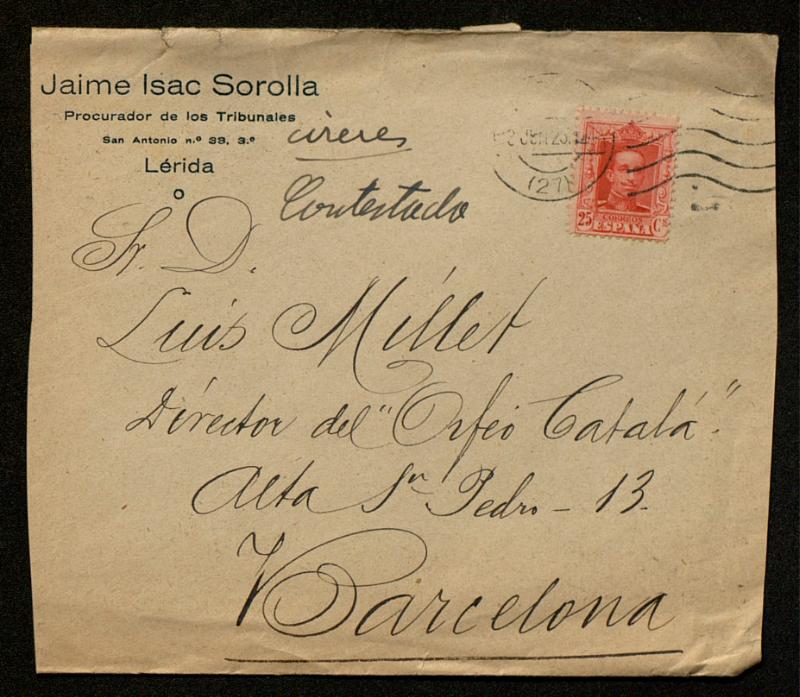 Jaime Isac Sorolla
Procurador de los Tribunales
San Antonio n.º 39, 3.º
Lérida
cireres
Contestada
JUN 25
(27)
25 CORREOS Cs
ESPAÑA
Sr. D.
Luis Millet
Director del "Orfeó Catalá".
Alta Sn. Pedro - 13.
Barcelona